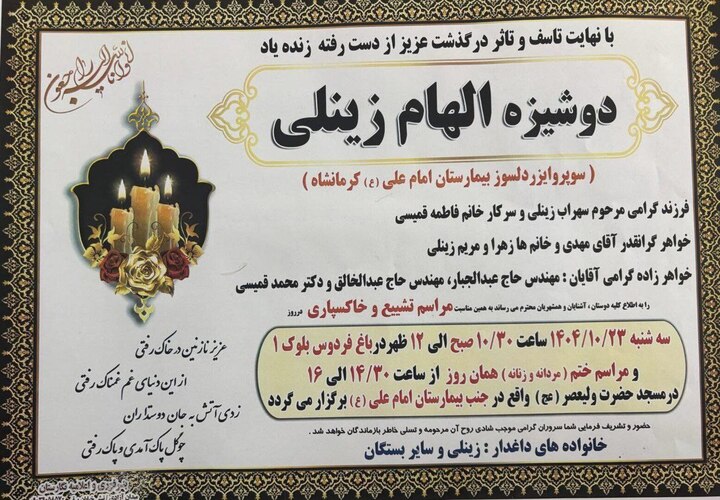 انا لله و انا الیه راجعون
با نهایت تاسف و تاثر درگذشت عزیز از دست رفته زنده یاد
دوشیزه الهام زینلی
( سوپروایزر دلسوز بیمارستان امام علی (ع) کرمانشاه )
فرزند گرامی مرحوم سهراب زینلی و سرکار خانم فاطمه قمیسی
خواهر گرانقدر آقای مهدی و خانم ها زهرا و مریم زینلی
خواهر زاده گرامی آقایان : مهندس حاج عبدالجبار، مهندس حاج عبدالخالق و دکتر محمد قمیسی
را به اطلاع کلیه دوستان ، آشنایان و همشهریان محترم می رساند به همین مناسبت مراسم تشییع و خاکسپاری در روز
سه شنبه ۱۴۰۴/۱۰/۲۳ ساعت ۱۰/۳۰ صبح الی ۱۲ ظهر در باغ فردوس بلوک ۱
و مراسم ختم ( مردانه و زنانه ) همان روز از ساعت ۱۴/۳۰ الی ۱۶
در مسجد حضرت ولیعصر (عج) واقع در جنب بیمارستان امام علی (ع) برگزار می گردد
حضور و تشریف فرمایی شما سروران گرامی موجب شادی روح آن مرحومه و تسلی خاطر بازماندگان خواهد شد .
خانواده های داغدار : زینلی و سایر بستگان
عزیز نازنین در خاک رفتی
از این دنیای غم غمناک رفتی
زدی آتش به جان دوستداران
چو گل پاک آمدی و پاک رفتی